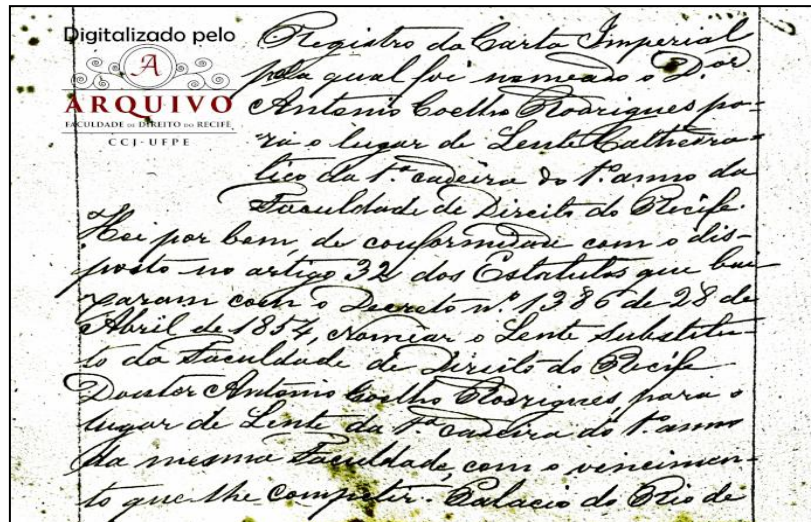 Digitalizado pelo
A
ARQUIVO
FACULDADE DE DIREITO DO RECIFE
CCJ-UFPE
Registro da Carta Imperial
pela qual foi nomeado o D.or
Antonio Coelho Rodrigues pa-
ra o lugar de Lente Cathedra-
tico da 1.a cadeira do 1.o anno da
Faculdade de Direito do Recife.
Hei por bem, de conformidade com o dis-
posto no artigo 32 dos Estatutos que bai-
xaram com o Decreto n.o 1386 de 28 de
Abril de 1854, nomear o Lente substitu-
to da Faculdade de Direito do Recife
Doutor Antonio Coelho Rodrigues para o
lugar de Lente da 1.a cadeira do 1.o anno
da mesma Faculdade, com o vencimen-
to que lhe competir. Palacio do Rio de